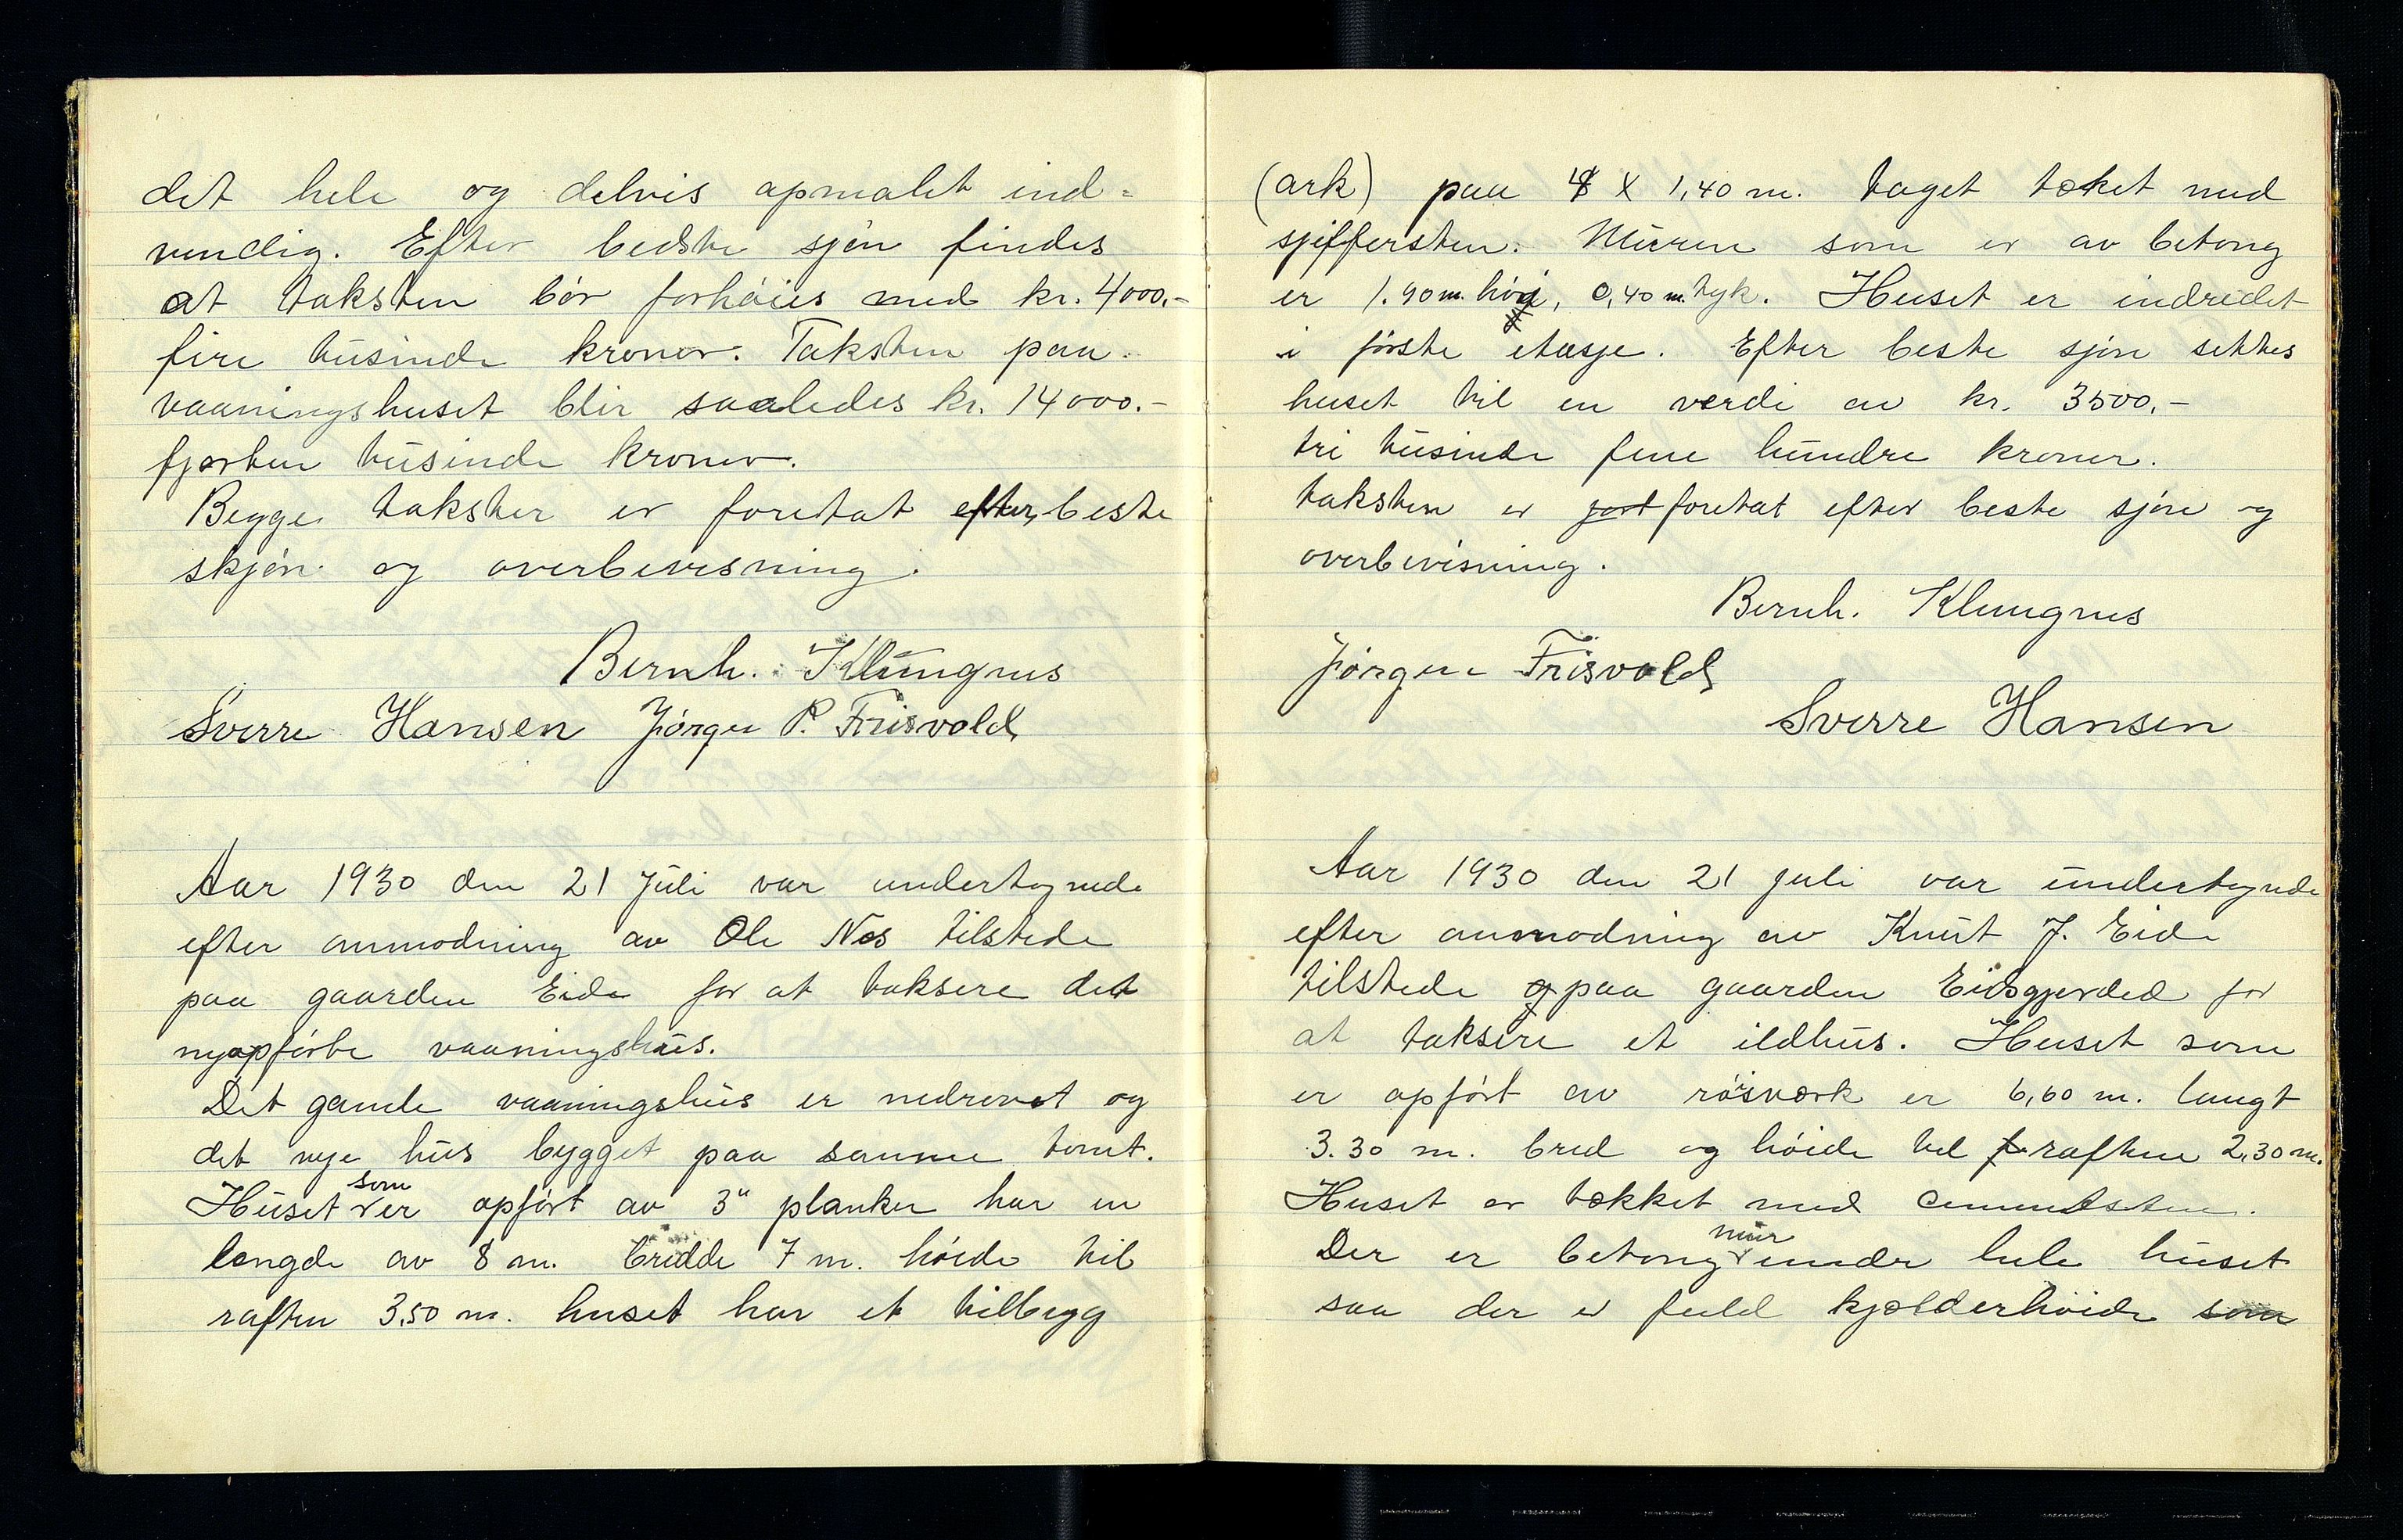 det hele og delvis opmalet ind=
vendig. Efter bedste sjøn findes
at taksten bør forhøies med kr. 4000.-
fire tusinde kroner. Taksten paa
vaaningshuset blir saaledes kr. 14000.-
fjorten tusinde kroner.
Begge takster er foretat efter beste
skjøn og overbevisning.
Bernh. Klungnes
Sverre Hansen Jørgen P. Frisvold
Aar 1930 den 21 Juli var undertegnede
efter anmodning av Ole Nes tilstede
paa gaarden Eide for at taksere det
nyopførte vaaningshus.
Det gamle vaaningshus er nedrevet og
det nye hus bygget paa samme tomt.
Huset som er opført av 3" planker har en
længde av 8 m. bredde 7 m. høide til
raften 3,50 m. huset har et tilbygg
(ark) paa 4 X 1,40 m. taget tæket med
sjiffersten. Muren som er av betong
er 1.90 m. høi, 0,40 m. tyk. Huset er indredet
i første etasje. Efter beste sjøn settes
huset til en verdi av kr. 3500.-
tri tusinde feme hundre kroner.
taksten er gjort foretat efter beste sjøn og
overbevisning.
Bernh. Klungnes
Jørgen Frisvold
Sverre Hansen
Aar 1930 den 21 juli var undertegnede
efter anmodning av Knut J. Eide
tilstede og paa gaarden Eidsgjerded for
at taksere et ildhus. Huset som
er opført av røsværk er 6,60 m. langt
3.30 m. bred og høide til raften 2,30 m.
Huset er tækket med cementsten.
Der er betong mur under hele huset
saa der er fuld kjælderhøide som